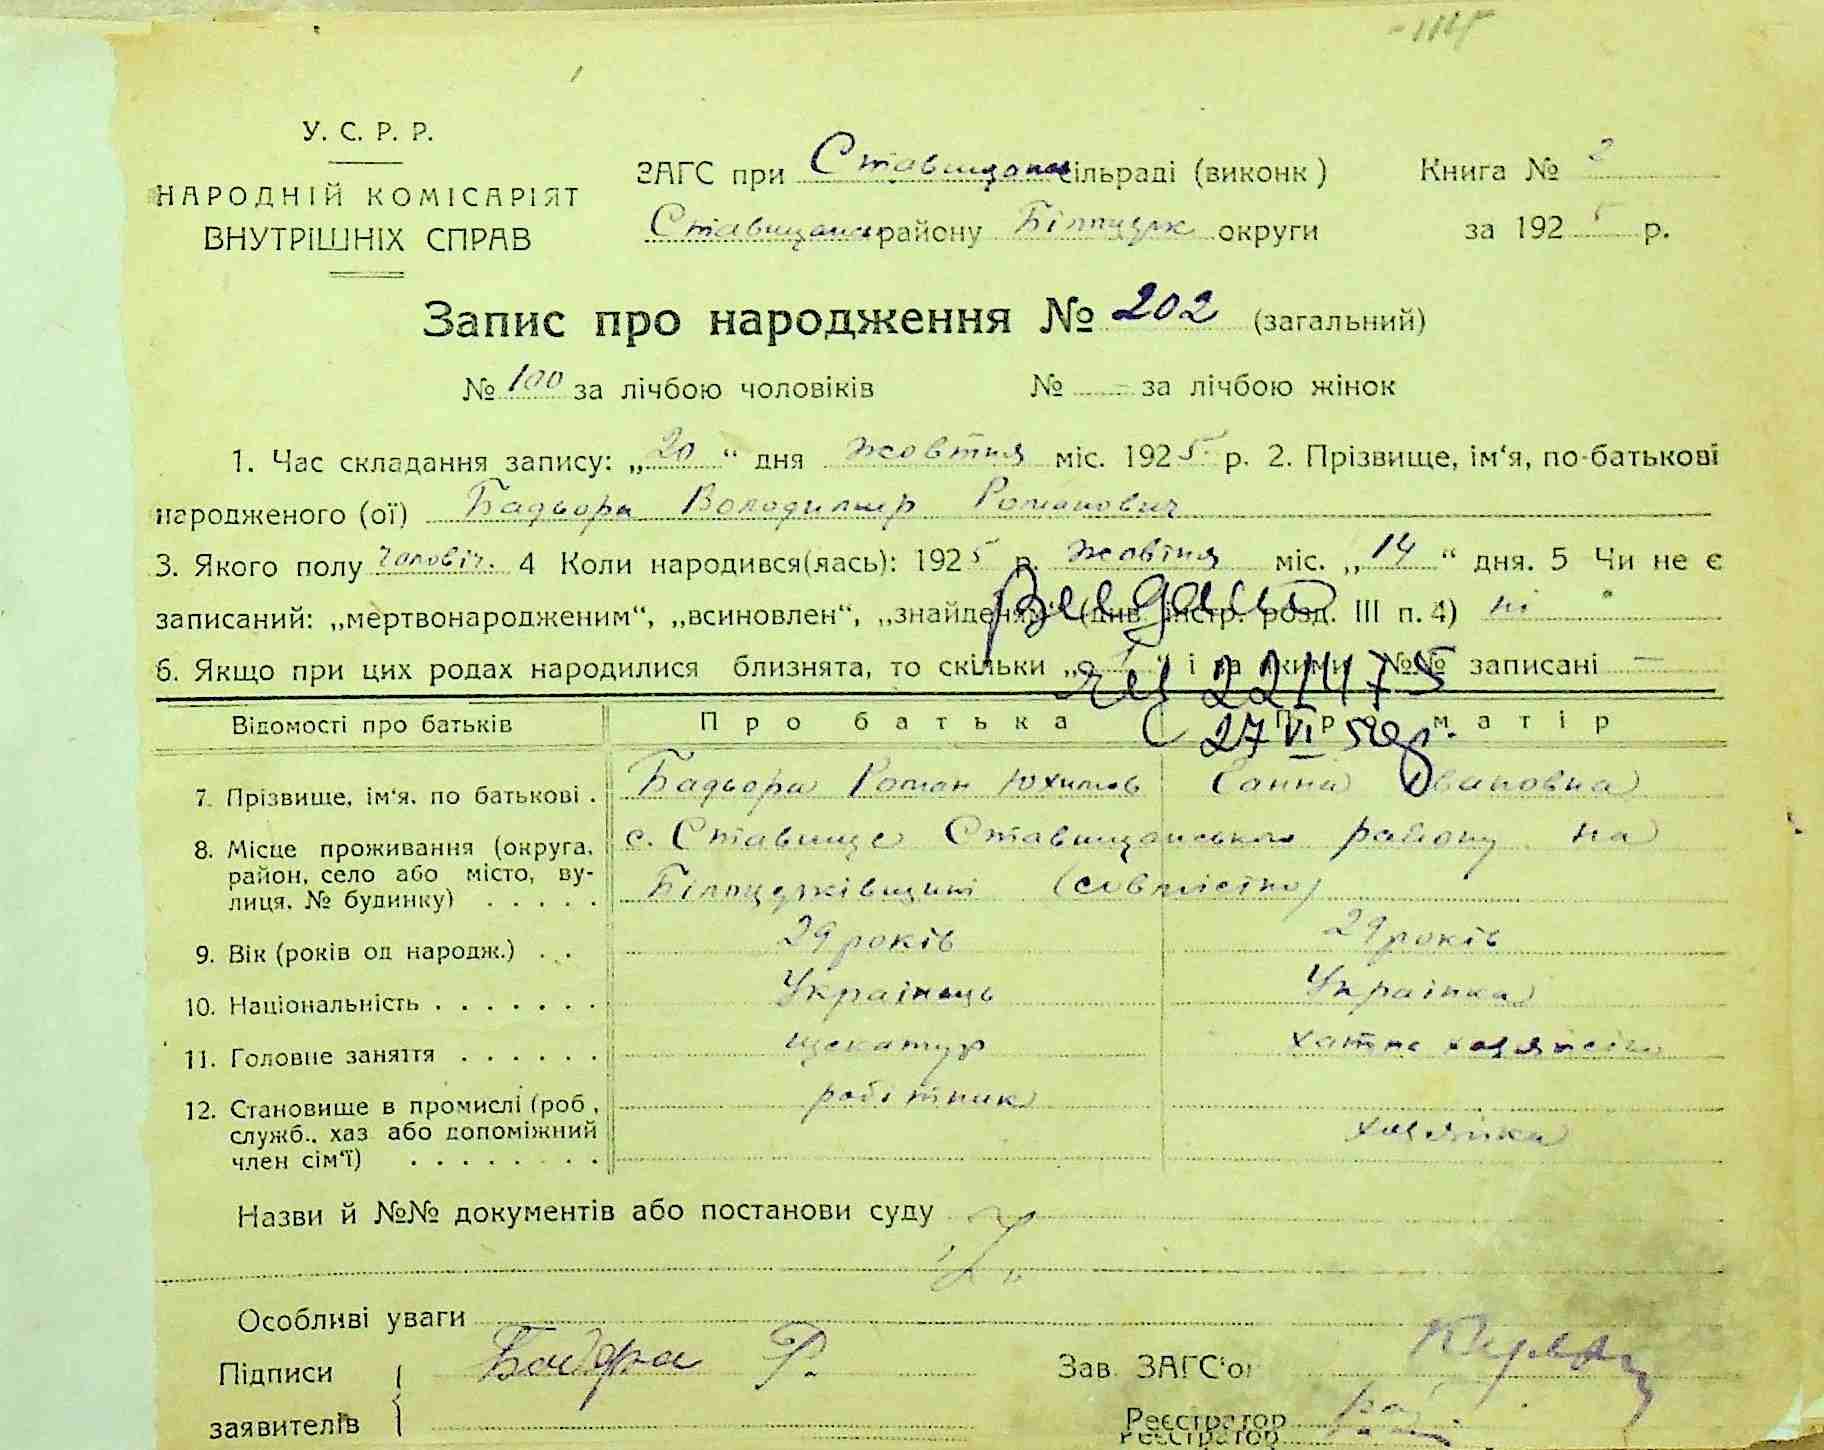 У. С. Р. Р.
НАРОДНІЙ КОМІСАРІЯТ
ВНУТРІШНІХ СПРАВ
ЗАГС при Ставищанськ сільраді (виконк) Книга № 2
Ставищанськ району Білоцерк округи за 1925 р.
Запис про народження № 202 (загальний)
№ 100 за лічбою чоловіків № - за лічбою жінок
1. Час складання запису: „20“ дня жовтня міс. 1925 р. 2. Прізвище, ім‘я, по-батькові
народженого (ої) Бадьора Володимир Романович
3. Якого полу чоловіч. 4 Коли народився(лась): 1925 р. жовтня міс. „14“ дня. 5 Чи не є
записаний: „мертвонародженим“, „всиновлен“, „знайденям“ (див. інстр. розд. III п. 4) ні
6. Якщо при цих родах народилися близнята, то скільки „ “ і за якими №№ записані —
Видано
27 VI 50
Відомості про батьків Про батька Про матір
7. Прізвище, ім‘я. по батькові . Бадьора Роман Юхимов Ганна Івановна
8. Місце проживання (округа, с. Ставище Ставищанського району на
район, село або місто, ву-
лиця. № будинку) . . . . . Білоцерківщині (совмістно)
9. Вік (років од народж.) . . 29 років 29 років
10. Національність . . . . . . . Українець Українка
11. Головне заняття . . . . . . щекатур хатнє хазяйство
12. Становище в промислі (роб., робітник
служб., хаз або допоміжний хазяйка
член сім‘ї) . . . . . . . .
Назви й №№ документів або постанови суду
Особливі уваги
Підписи Бадьора Р. Зав. ЗАГС‘ом
заявителів Реєстратор
Реєстратор